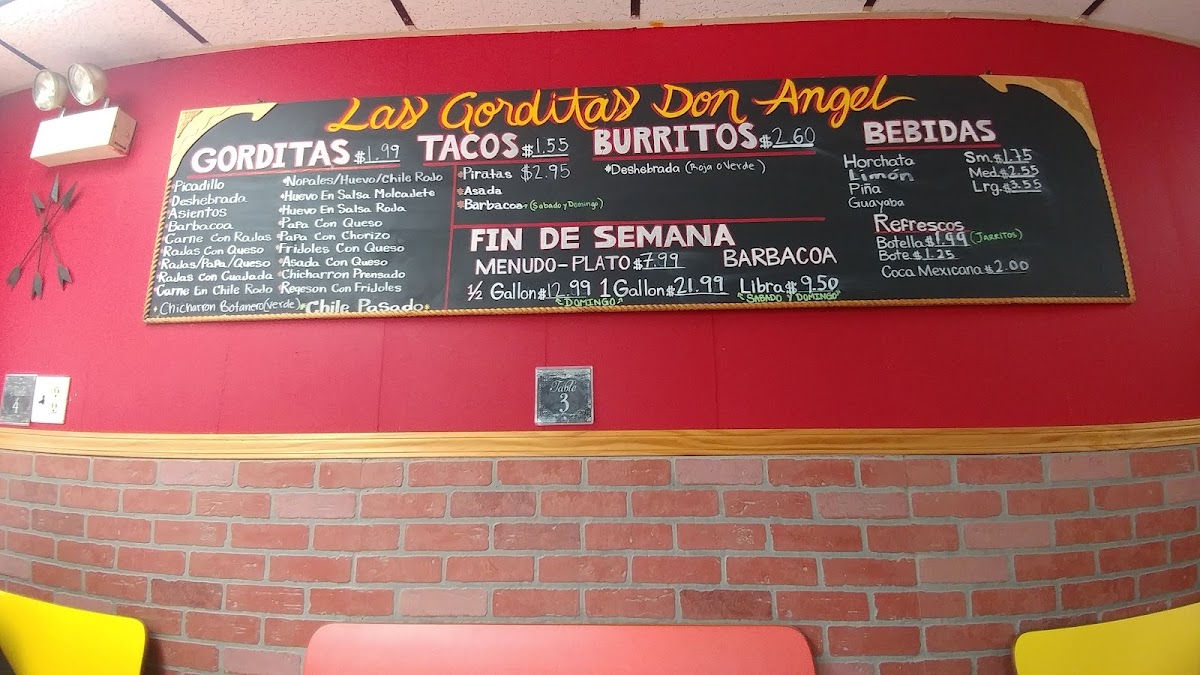 Las Gorditas Don Angel
GORDITAS $1.99
Picadillo
Deshebrada
Asientos
Barbacoa
Carne Con Rajas
Rajas Con Queso
Rajas/Papa/Queso
Rajas Con Cuajada
Carne En Chile Rojo
Chicharron Botanero (Verde)
Nopales/Huevo/Chile Rojo
Huevo En Salsa Molcajete
Huevo En Salsa Roja
Papa Con Queso
Papa Con Chorizo
Frijoles Con Queso
Asada Con Queso
Chicharron Prensado
Requeson Con Frijoles
Chile Pasado
TACOS $1.55
Piratas $2.95
Asada
Barbacoa (Sabado y Domingo)
BURRITOS $2.60
Deshebrada (Roja o Verde)
FIN DE SEMANA
MENUDO-PLATO $7.99
½ Gallon $12.99 1 Gallon $21.99
DOMINGO
BARBACOA
Libra $9.50
SABADO Y DOMINGO
BEBIDAS
Horchata
Limón
Piña
Guayaba
Sm. $1.75
Med. $2.55
Lrg. $3.55
Refrescos
Botella $1.99 (JARRITOS)
Bote $1.25
Coca Mexicana $2.00
4
Table
3